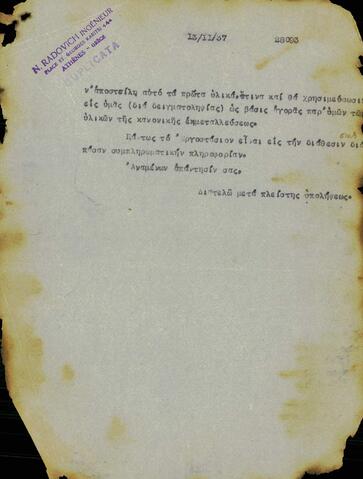 N. RADOVICH INGÉNIEUR
PLACE ST. GEORGES KARITSI
ATHÈNES - GRÈCE
DUPLICATA
13/11/37 28093
ν'ἀποστείλῃ αὐτό τά πρῶτα ὑλικά, ἅτινα καί θά χρησιμεύσωσι
εἰς ὑμᾶς (διά δειγματοληψίας) ὡς βάσις ἀγορᾶς παρ'ὑμῶν τῶν
ὑλικῶν τῆς κανονικῆς ἐκμεταλλεύσεως.
Πάντως τό Ἐργοστάσιον εἶναι εἰς τήν διάθεσιν διά
πᾶσαν συμπληρωματικήν πληροφορίαν.
Ἀναμένων ἀπάντησίν σας.
Διατελῶ μετά πλείστης ὑπολήψεως.